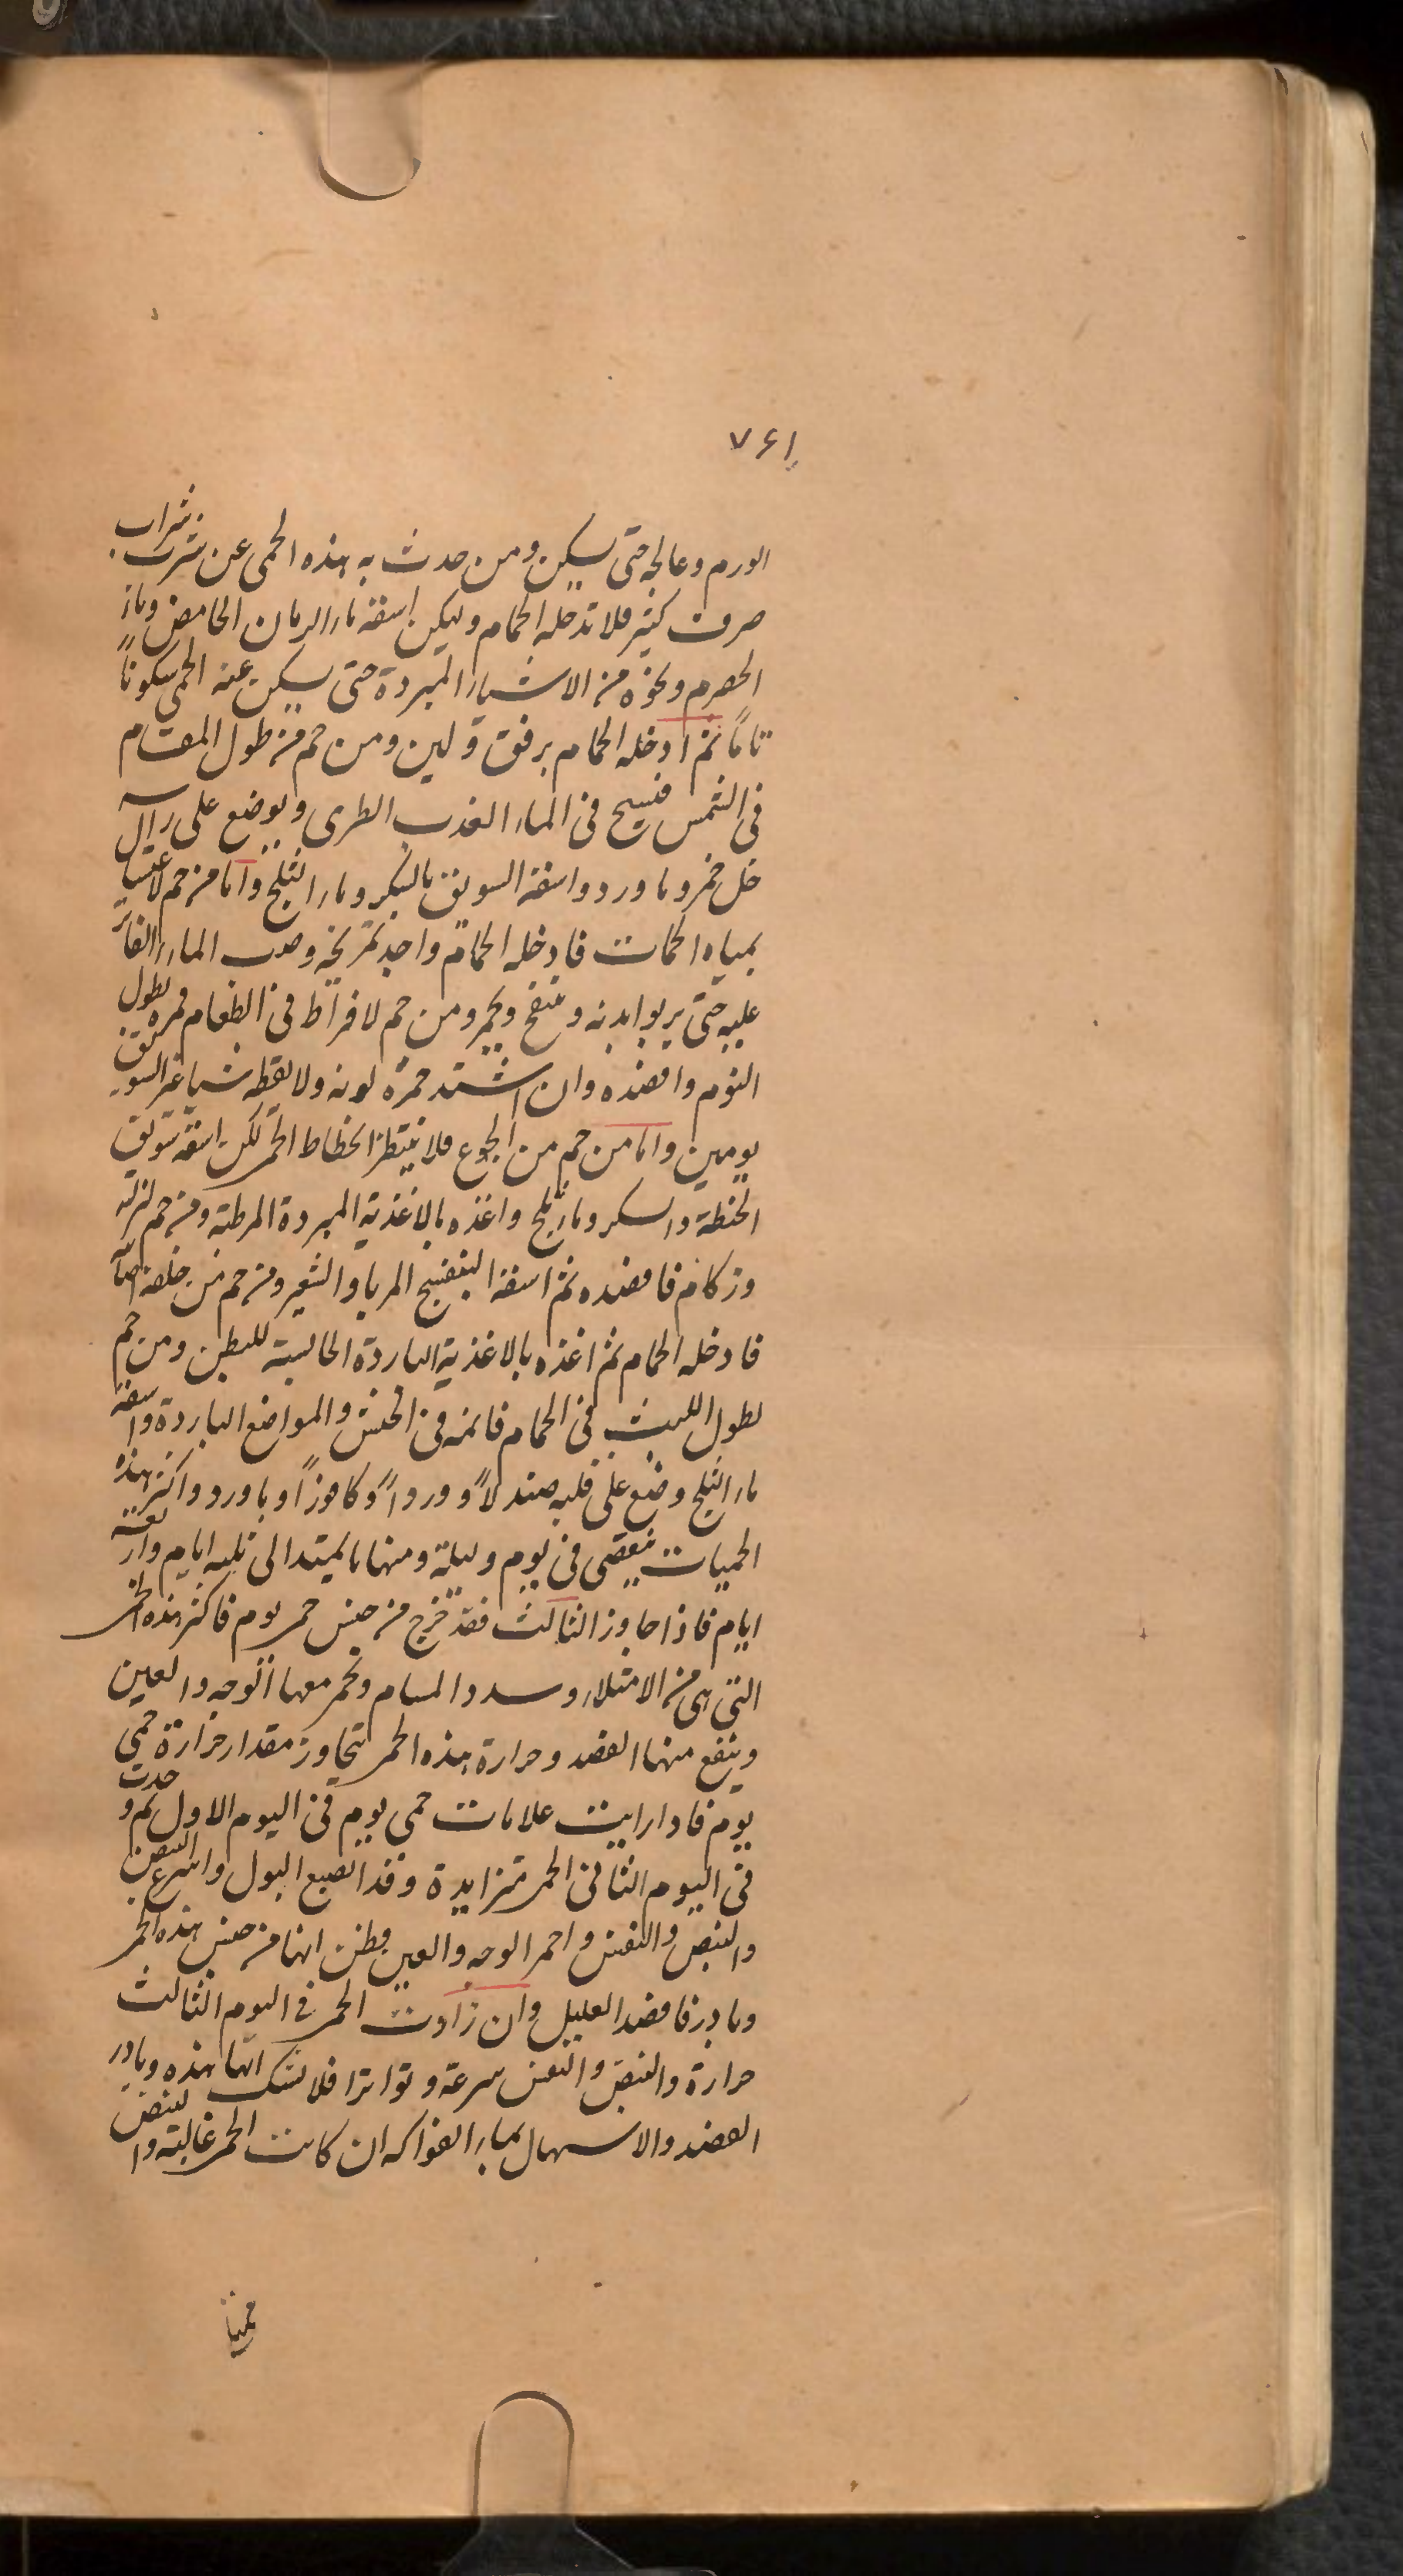 ٧٤١
الورم وعالجه حتى يسكن ومن حدث به هذه الحمى عن شرب شراب
صرف كثير فلا تدخله الحمام وليكن اسقه ماء الرمان الحامض وماء
الحصرم ونحوه من الاشياء المبردة حتى يسكن عنه الحمى سكوناً
تاماً ثم ادخله الحمام برفق ولين ومن حم من طول المقام
في الشمس فيسبح في الماء العذب الطرى ويوضع على راسه
خل خمر وماورد واسقه السويق بالسكر وماء الثلج واما من حم لاغتساله
بمياه الحمات فادخله الحمام واجد تمريخه وصب الماء الفاتر
عليه حتى يربوا بدنه وينتفخ ويحمر ومن حم لافراط في الطعام فمره بطول
النوم وافصده وان اشتد حمرة لونه ولا يعطه شيا غير السويق
يومين واما من حم من الجوع فلا ينتظر انحطاط الحمى لكن اسقه سويق
الحنطة والسكر وماء ثلج واغذه بالاغذية المبردة المرطبة ومن حم لنزلة
وزكام فافصده ثم اسقه البنفسج المربا والشعير ومن حم من خلفة اصابته
فادخله الحمام ثم اغذه بالاغذية الباردة الحابسة للبطن ومن حم
لطول اللبث في الحمام فانمه في الخيش والمواضع الباردة واسقه
ماء الثلج وضع على قلبه صندلاً ووردا وكافوراً وماورد واكثر هذه
الحميات ينقضى في يوم وليلة ومنها ما يمتد الى ثلثه ايام واربعة
ايام فاذا جاوز الثالث فقد خرج من جنس حمى يوم فاكثر هذه الحمى
التي هي من الامتلاء وسدد المسام وتحمر معها الوجه والعين
وينفع منها الفصد وحرارة هذه الحمى تتجاوز مقدار حرارة حمى
يوم فاذا رايت علامات حمى يوم في اليوم الاول ثم وجدت
في اليوم الثاني الحمى متزايدة وقد انصبغ البول واسرع النبض
والنبض والنفس واحمر الوجه والعين فظن انها من جنس هذه الحمى
وبادر فافصد العليل وان زادت الحمى في اليوم الثالث
حرارة والنبض والنفس سرعة وتواترا فلا تشك انها هذه وبادر
الفصد والاسهال بماء الفواكه ان كانت الحمى غالبة والنبض